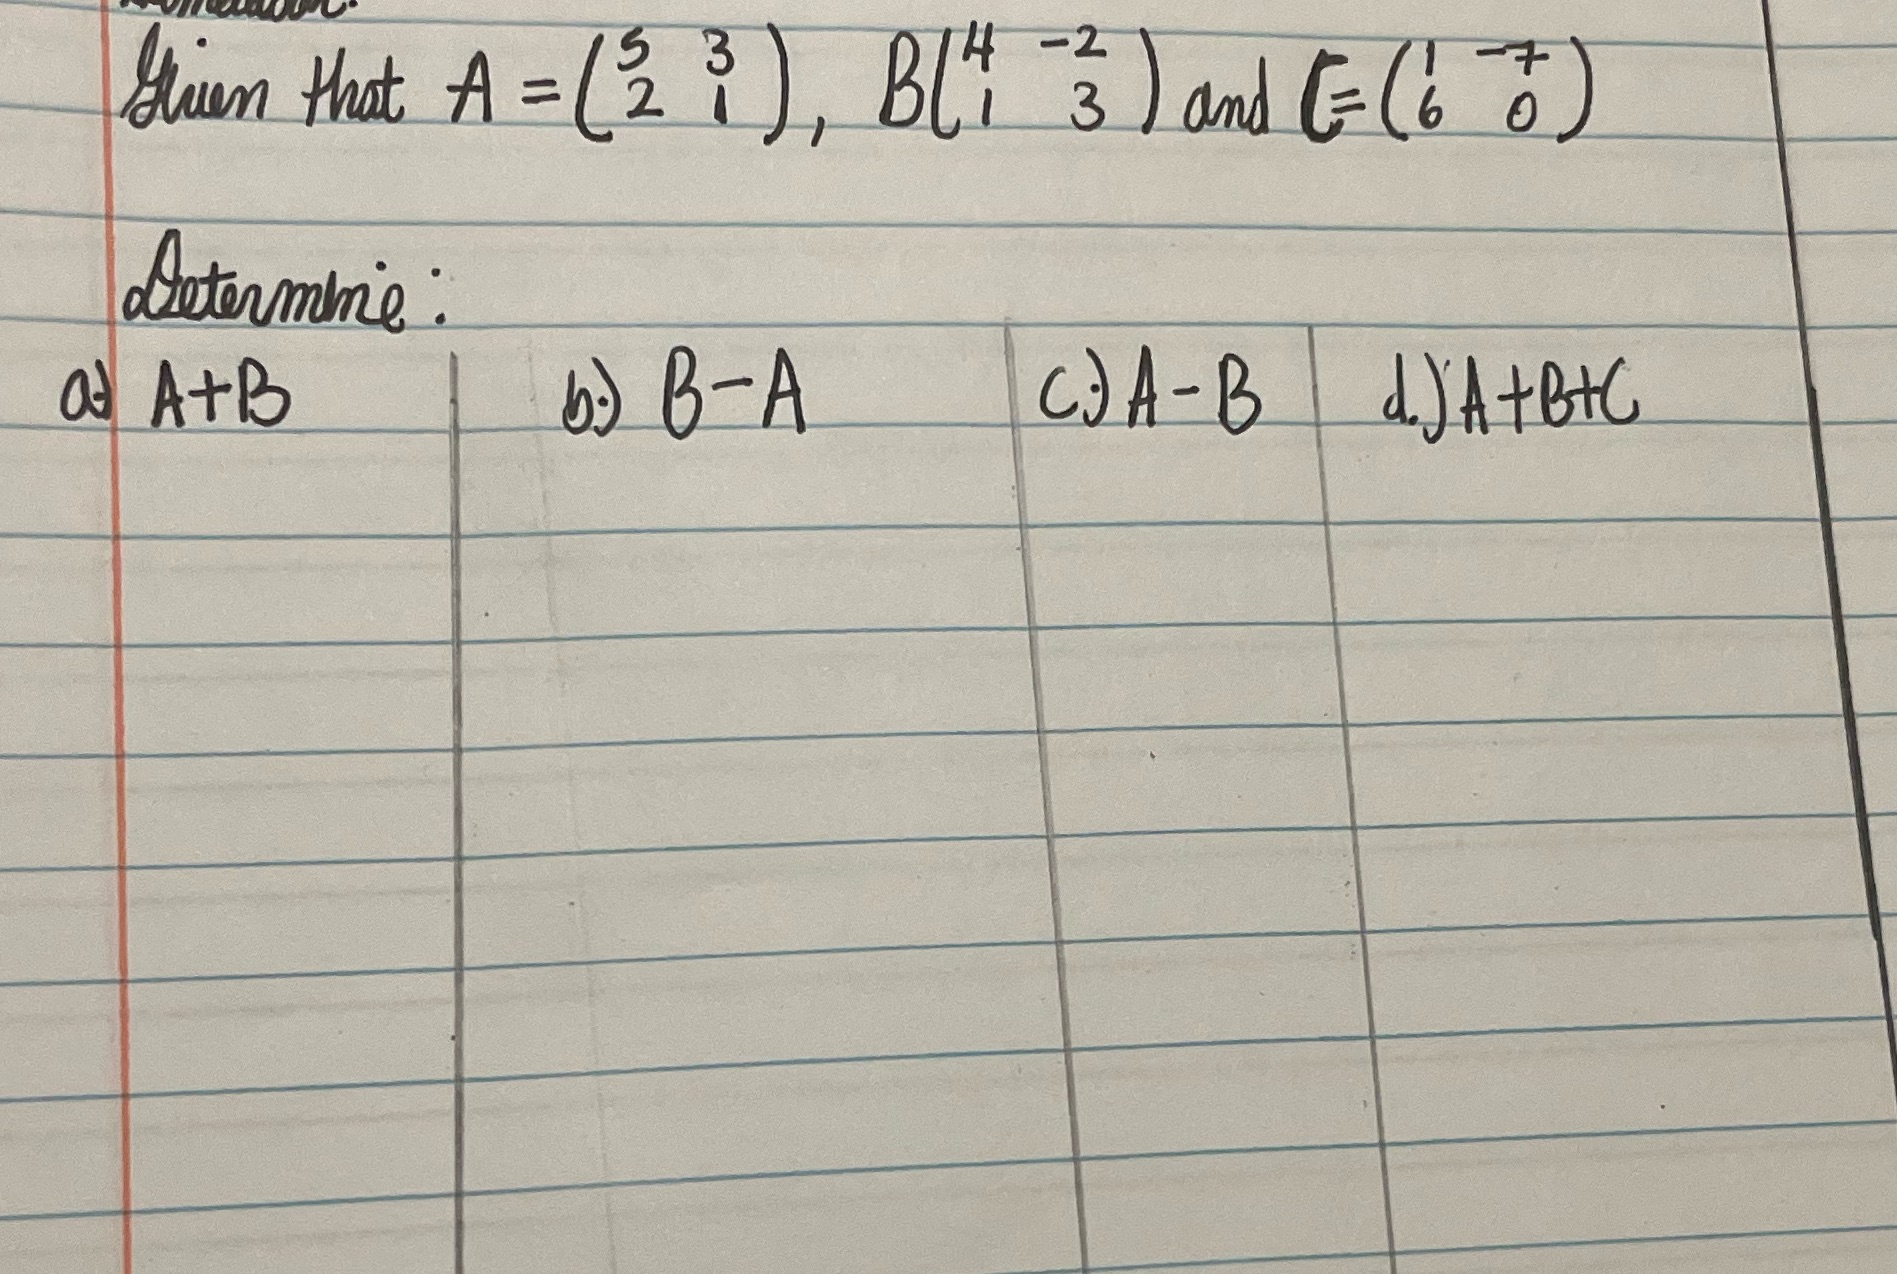 Given that A = (5 3 , B(4 -2 and C = (1 -7
2 1), 1 3) 6 0)
Determine:
a.) A+B b.) B-A c.) A-B d.) A+B+C